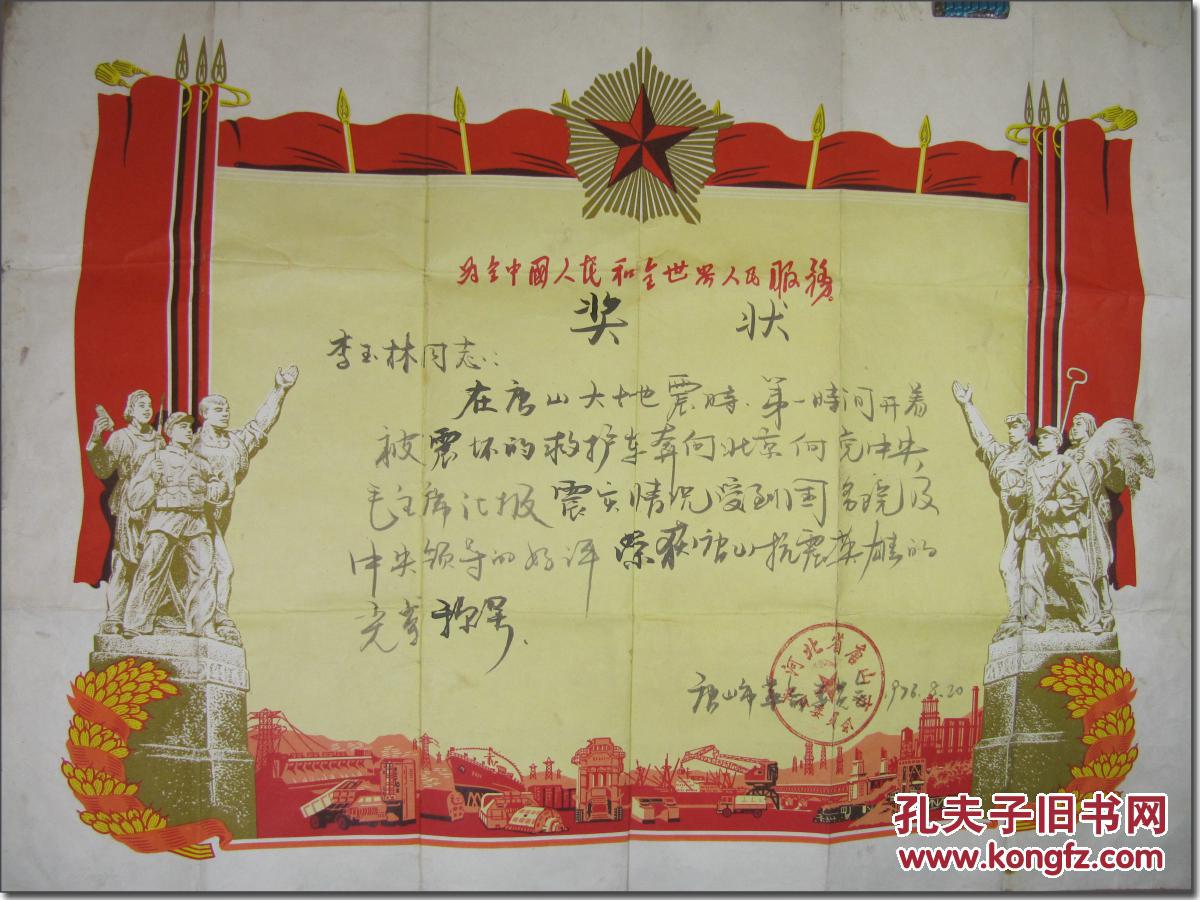 为全中國人民和全世界人民服務。
奖 状
李玉林同志：
在唐山大地震時、第一時间开着
被震坏的救护车奔向北京向党中央、
毛主席汇报震灾情况受到国务院及
中央领导的好评 荣获唐山抗震英雄的
光荣称号、
河北省唐山市
委员会
唐山市革命委员会 1976.8.20
孔夫子旧书网
www.kongfz.com